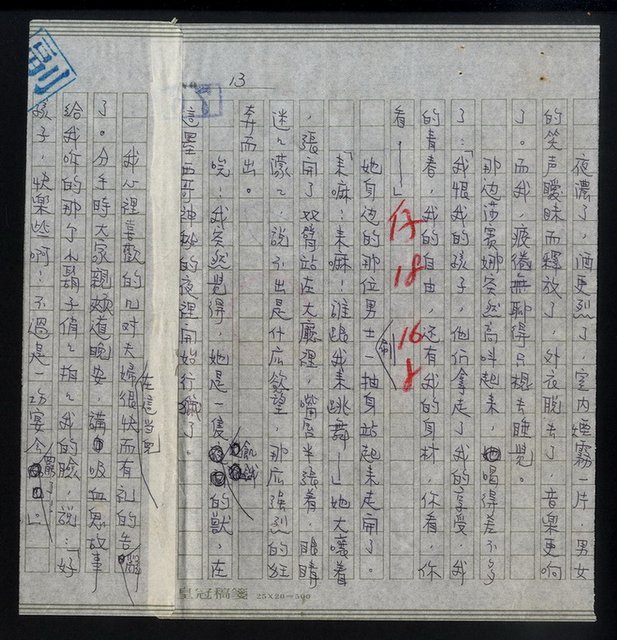 13
夜濃了，酒更烈了，室內煙霧一片，男女
的笑声曖昧而釋放了，外衣脫去了，音樂更响
了。而我，疲倦無聊得只想去睡覺。
那边莎賽娜突然高叫起来，喝得差不多
了。「我恨我的孩子，他们拿走了我的享受，我
的青春，我的自由，还有我的身材，你看，你
看——」
仔 18 16
她身边的那位男士一抽身站起来走開了。
「来嘛！来嘛！誰跟我来跳舞——」她大嚷着
，張開了双臂站在大廳裡，嘴唇半張着，眼睛
迷迷濛濛，說不出是什麼欲望，那麼强烈的狂
奔而出。
唉！我突然覺得，她是一隻飢餓的獸，在
這墨西哥神秘的夜裡開始行獵了。
我心裡喜歡的几对夫婦很快而有礼的告辭
了。分手時大家親頰道晚安，講吸血鬼故事
給我听的那个小鬍子俏俏拍拍我的臉，說：「好
孩子，快樂些啊！不過是一場宴会罷了！」
在這当兒
皇冠稿箋 25×20=500